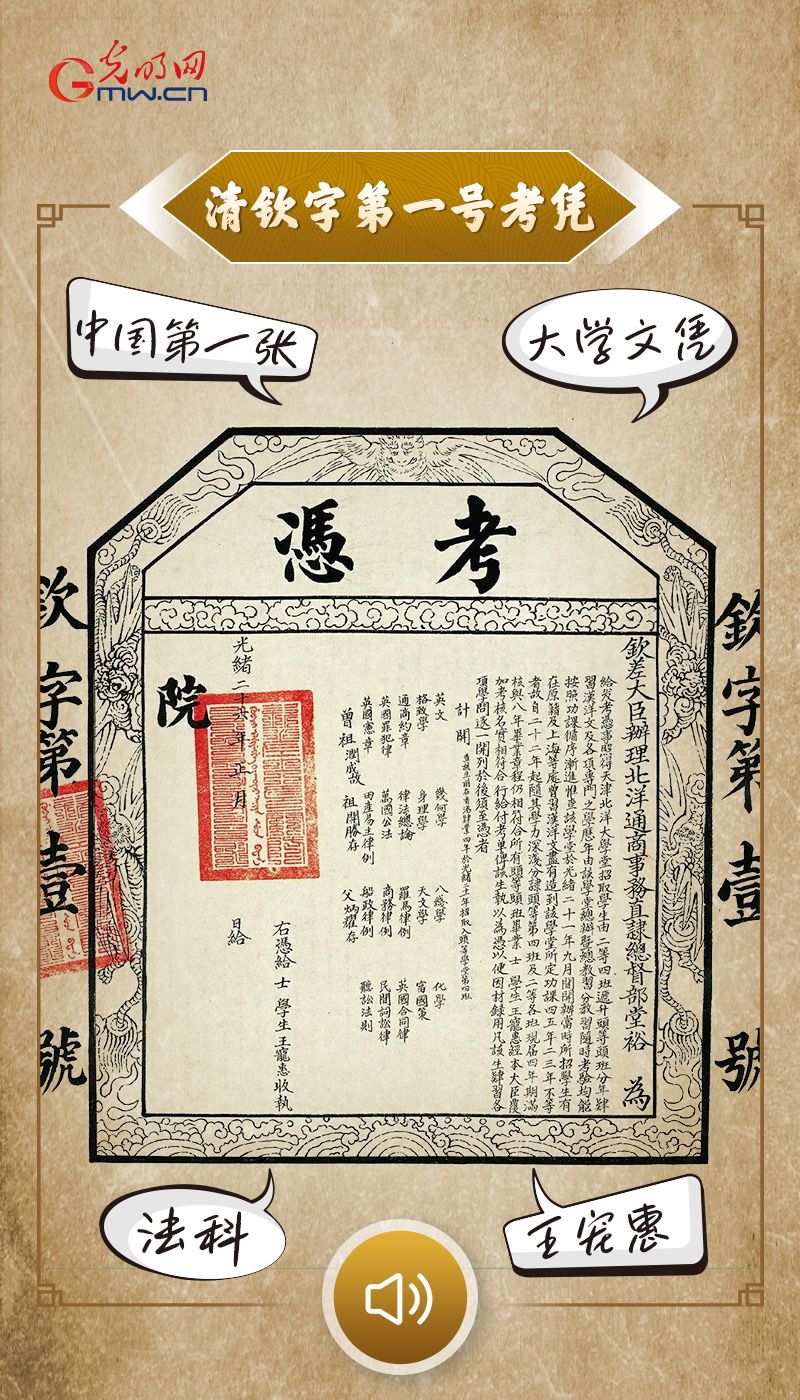 光明网
GMW.CN
清钦字第一号考凭
中国第一张
大学文凭
考憑
欽字第壹號
欽差大臣辦理北洋通商事務直隸總督部堂裕 為
給發考憑事照得天津北洋大學堂招取學生由二等四班遞升頭等頭班分年肄
習漢洋文及各項專門之學歷八年由該學堂總辦暨總教習分教習隨時考驗均能
按照功課循序漸進惟查該學堂於光緒二十一年九月間開辦當時所招學生有
在原籍及上海等處曾習漢洋文盡有造到該學堂所定功課四五年二三年不等
者故自二十二年起隨其學力深淺分隸頭等第四班及二等各班現屆四年期滿
核與八年畢業章程仍相符合所有頭等頭班畢業士 學生王寵惠經本大臣覆
加考核名實相符合行給付考單傳該生執以為憑以便因材録用凡該生肄習各
項學問逐一開列於後須至憑者
計開
英文 幾何學 八綫學 化學
格致學 身理學 天文學 富國策
通商約章 律法總論 羅馬律例 英國合同律
英國罪犯律 萬國公法 商務律例 民間詞訟律
英國憲章 田產易主律例 船政律例 聽訟法則
曾祖潤成故 祖開勝存 父炳耀存
右憑給 士 學生王寵惠收執
光緒二十六年正月 日給
院
欽字第壹號
法科
王宠惠